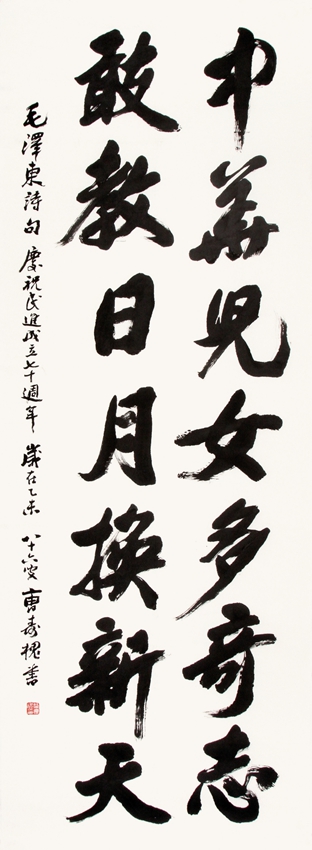 中華兒女多奇志
敢教日月換新天
毛澤東詩句 慶祝民進成立七十週年 歲在乙未 八十六叟 曹壽槐書